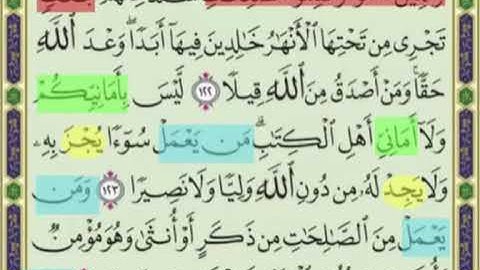 تَجْرِى مِن تَحْتِهَا ٱلْأَنْهَٰرُ خَٰلِدِينَ فِيهَآ أَبَدًا ۖ وَعْدَ ٱللَّهِ
حَقًّا ۚ وَمَنْ أَصْدَقُ مِنَ ٱللَّهِ قِيلًا ١٢٢ لَّيْسَ بِأَمَانِيِّكُمْ
وَلَآ أَمَانِىِّ أَهْلِ ٱلْكِتَٰبِ ۗ مَن يَعْمَلْ سُوٓءًا يُجْزَ بِهِۦ
وَلَا يَجِدْ لَهُۥ مِن دُونِ ٱللَّهِ وَلِيًّا وَلَا نَصِيرًا ١٢٣ وَمَن
يَعْمَلْ مِنَ ٱلصَّٰلِحَٰتِ مِن ذَكَرٍ أَوْ أُنثَىٰ وَهُوَ مُؤْمِنٌ